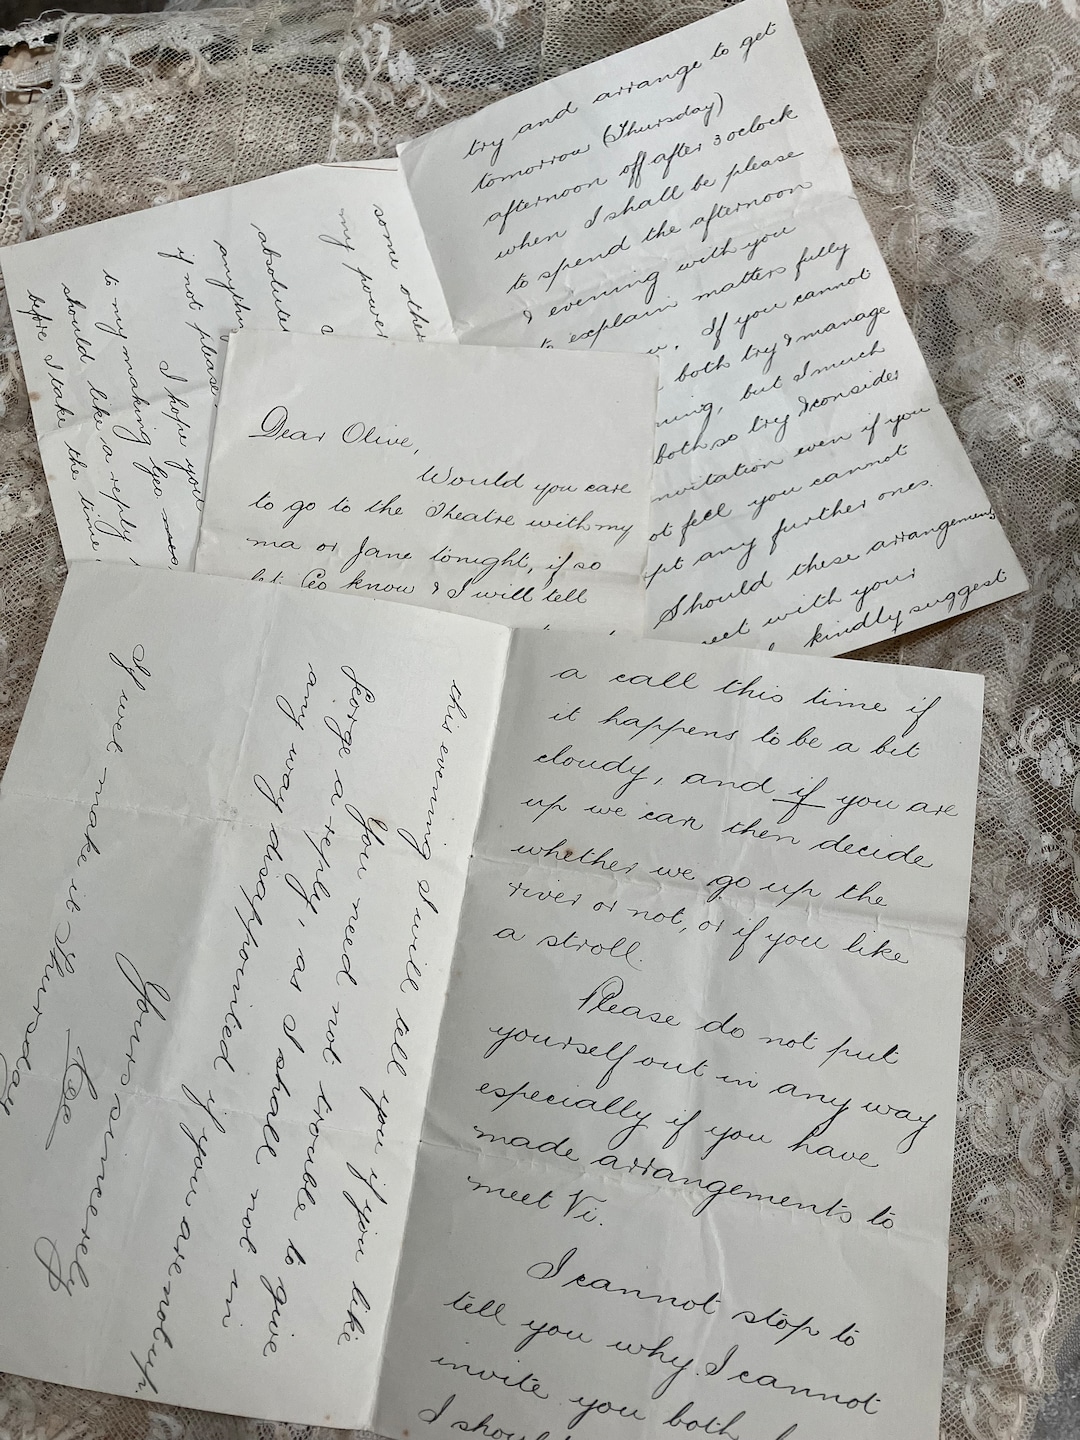 try and arrange to get
tomorrow (Thursday)
afternoon off after 3 oclock
when I shall be please
to spend the afternoon
& evening with you
to explain matters fully
If you cannot
both try & manage
but I much
both so try & consider
invitation even if you
feel you cannot
any further ones.
Should these arrangements
with your
kindly suggest
some other
my power
absolute
anythin
if not please
I hope you
to my making
should like a reply
before I take the time
Dear Olive,
Would you care
to go to the Theatre with my
ma or Jane tonight, if so
let Ceo know & I will tell
this evening I will tell you if you like
George a reply, You need not trouble to give
any way disappointed if you are not up.
as I shall not in
If wet make it Thursday
Yours sincerely
a call this time if
it happens to be a bit
cloudy, and if you are
up we can then decide
whether we go up the
river or not, or if you like
a stroll.
Please do not put
yourself out in any way
especially if you have
made arrangements to
meet Vi.
I cannot stop to
tell you why I cannot
invite you both
I shoul